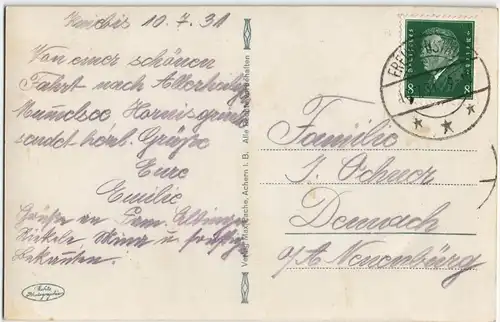 Kniebis 10.7.31
Von einer schönen
Fahrt nach Allerheilg.
Mumelsee Hornisgrinde
sendet herzl. Grüße
Eure
Emilie
Grüße an Fam.
u.
Bekannten.
Echte
Photographie
Verlag Max Fache, Achern i. B. Alle Rechte vorbehalten
DEUTSCHES REICH
8 8
FREUDENSTADT
Familie
J. Ochner
Dennach
O/A Neuenbürg